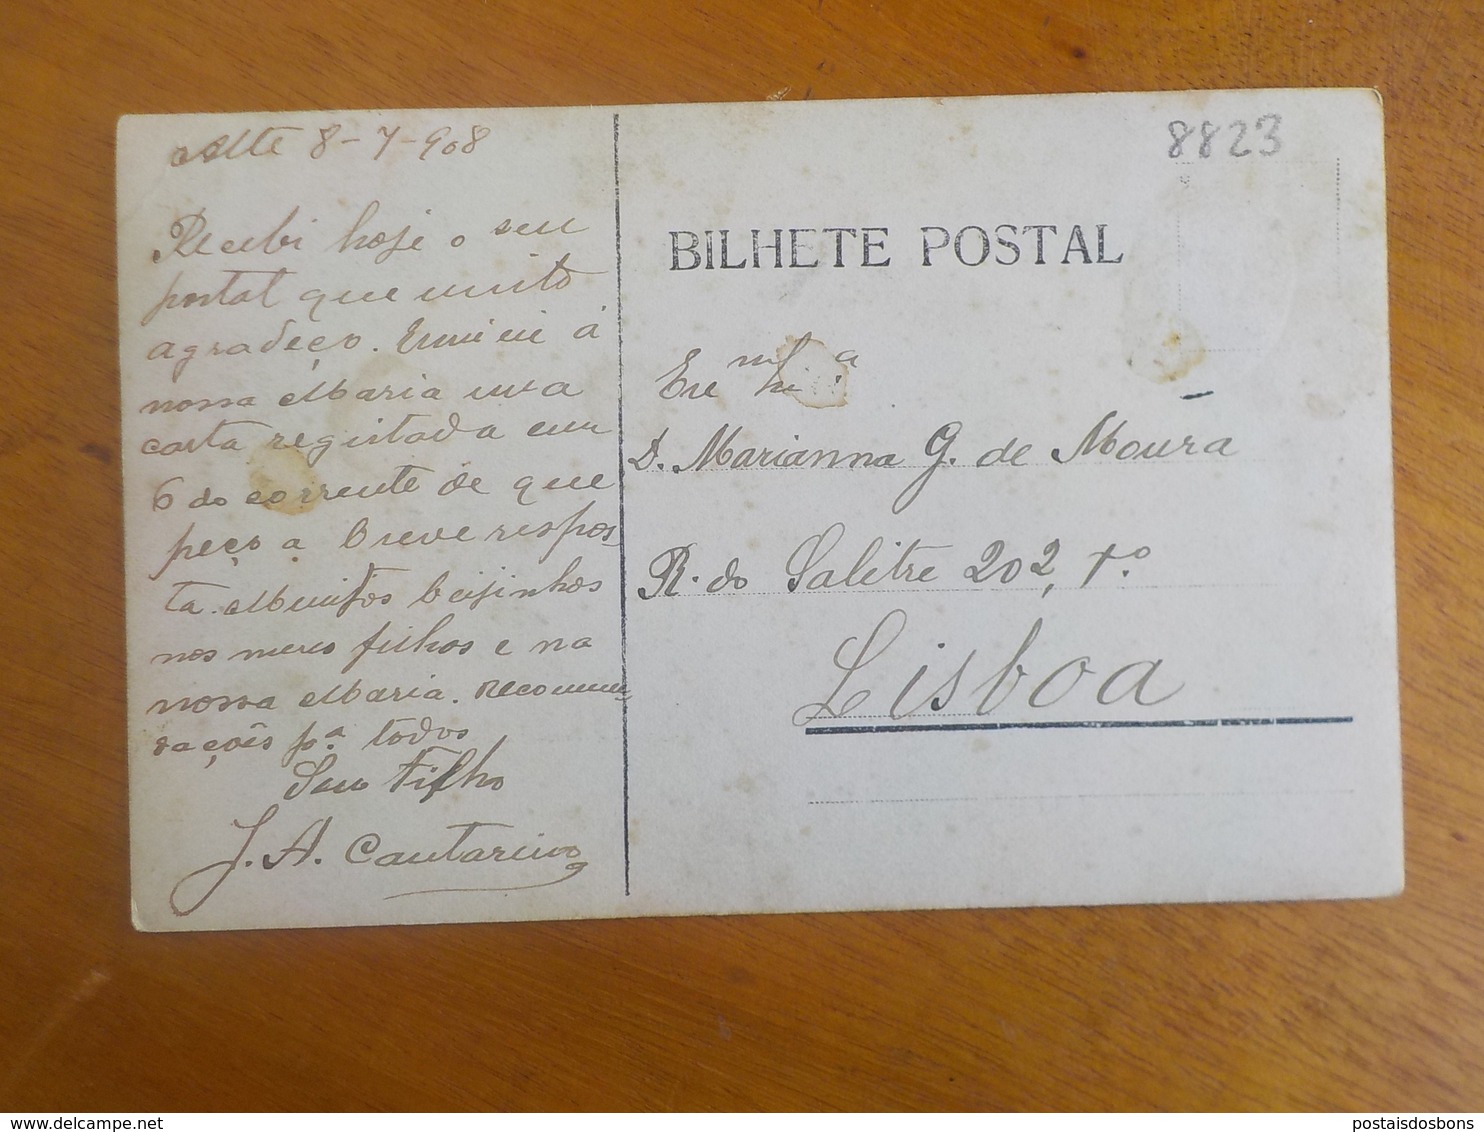 Alte 8-7-908
Recebi hoje o seu
postal que muito
agradeço. Enviei á
nossa Maria uma
carta registada em
6 do corrente de que
peço a breve respos-
ta. Muitos beijinhos
nos meus filhos e na
nossa Maria. Recomen-
dações pa. todos
Seu Filho
J. A. Cantarino
8823
BILHETE POSTAL
D. Marianna G. de Moura
R. do Salitre 202, 1.o
Lisboa
postaisdosbons